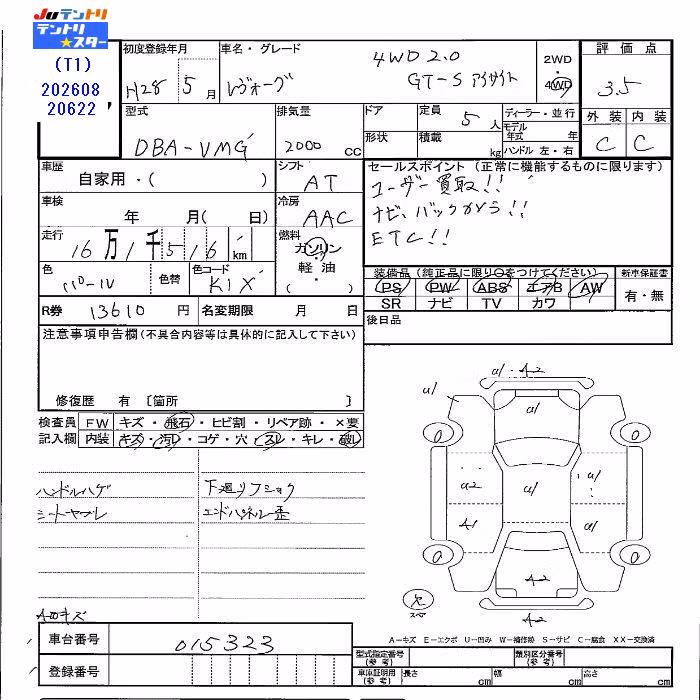 JUテントリ
テントリ
★スター
(T1)
202608
20622
初度登録年月
H28 5月
車名・グレード
レヴォーグ
4WD 2.0
GT-S アイサイト
2WD
4WD
評価点
3.5
外装 内装
C C
型式
DBA-VMG
排気量
2000 cc
ドア
定員
5人
形状
積載
kg
ディーラー・並行
モデル
年式 年
ハンドル 左・右
車歴
自家用・( )
シフト
AT
セールスポイント(正常に機能するものに限ります)
ユーザー買取!!
ナビ、バックカメラ!!
ETC!!
車検
年 月( 日)
冷房
AAC
走行
16万1千516km
燃料
ガソリン
・
軽油
・
色
パール
色替
色コード
K1X
装備品(純正品に限り○をつけてください)
PS PW ABS エアB AW
SR ナビ TV カワ
新車保証書
有・無
R券
13610円
名変期限 月 日
後日品
注意事項申告欄(不具合内容等は具体的に記入して下さい)
修復歴 有 〔箇所 〕
検査員
記入欄
FW キズ・飛石・ヒビ割・リペア跡・×要
内装 キズ・汚レ・コゲ・穴・スレ・キレ・破レ
ハンドルハゲ
シートヤブレ
下廻りフショク
エンドパネル歪
A1 A2
A1
A1
A2 A1 A1
A1 A1
A2
A2
スペア
A-キズ E-エクボ U-凹み W-補修跡 S-サビ C-腐食 XX-交換済
車台番号
015323
登録番号
型式指定番号
(参考)
類別区分番号
(参考)
車庫証明用
(参考)
長さ cm
幅 cm
高さ cm